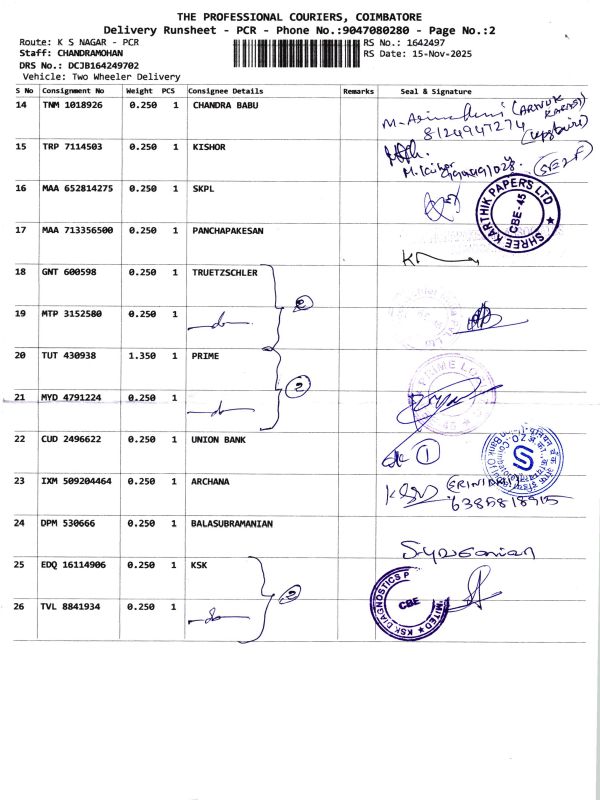 THE PROFESSIONAL COURIERS, COIMBATORE
Delivery Runsheet - PCR - Phone No.:9047080280 - Page No.:2
Route: K S NAGAR - PCR RS No.: 1642497
Staff: CHANDRAMOHAN RS Date: 15-Nov-2025
DRS No.: DCJB164249702
Vehicle: Two Wheeler Delivery
S No Consignment No Weight PCS Consignee Details Remarks Seal & Signature
14 TNM 1018926 0.250 1 CHANDRA BABU
8124947274
15 TRP 7114503 0.250 1 KISHOR
16 MAA 652814275 0.250 1 SKPL
SHREE KARTHIK PAPERS LTD
CBE-45
17 MAA 713356500 0.250 1 PANCHAPAKESAN
18 GNT 600598 0.250 1 TRUETZSCHLER
2
19 MTP 3152580 0.250 1 do
20 TUT 430938 1.350 1 PRIME
2
21 MYD 4791224 0.250 1 do
22 CUD 2496622 0.250 1 UNION BANK
1
23 IXM 509204464 0.250 1 ARCHANA
6385818915
24 DPM 530666 0.250 1 BALASUBRAMANIAN
25 EDQ 16114906 0.250 1 KSK
2
KSK DIAGNOSTICS P
MITED
CBE
26 TVL 8841934 0.250 1 do